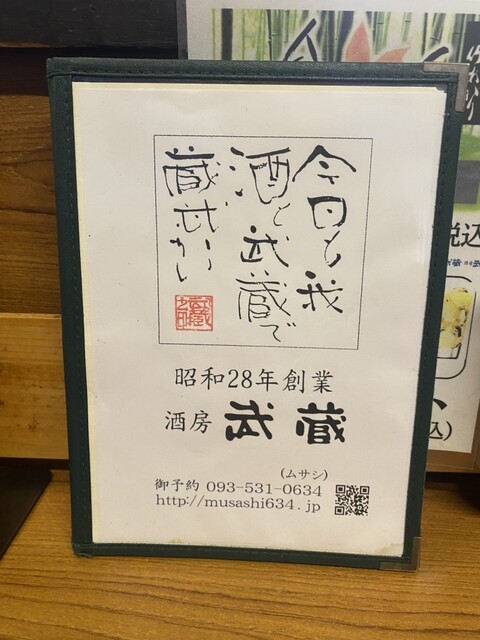 今日も我
酒と武蔵で
昭和28年創業
酒房 武蔵
(ムサシ)
御予約 093-531-0634
http://musashi634.jp
税込
込)